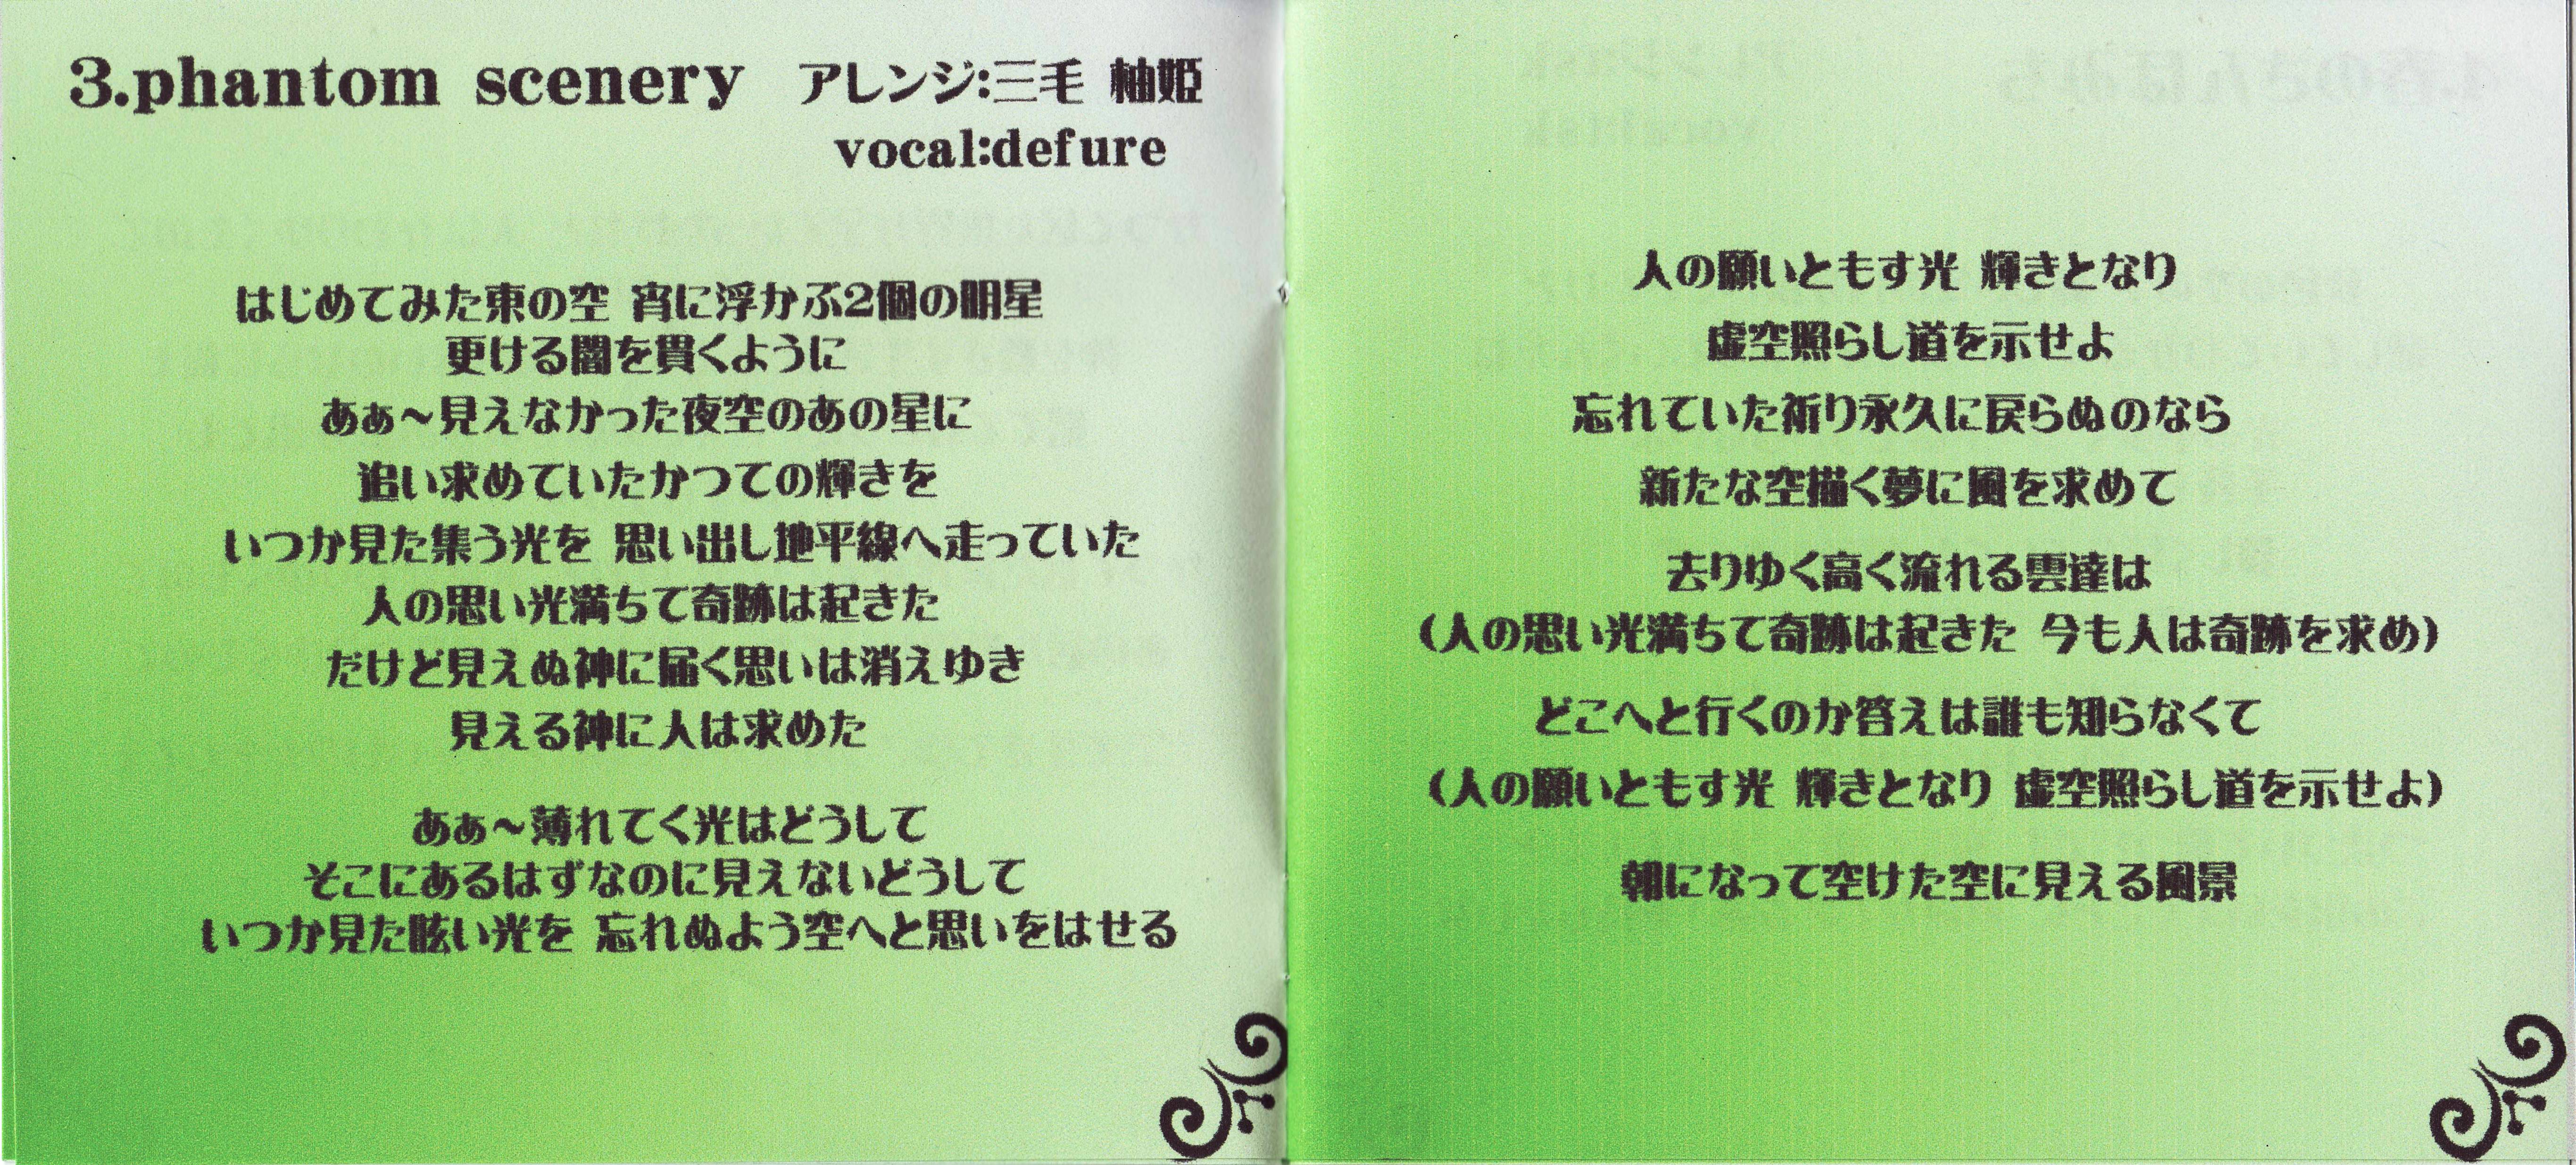 3.phantom scenery アレンジ:三毛 柚姫
vocal:defure
はじめてみた東の空 宵に浮かぶ2個の明星
更ける闇を貫くように
あぁ～見えなかった夜空のあの星に
追い求めていたかつての輝きを
いつか見た集う光を 思い出し地平線へ走っていた
人の思い光満ちて奇跡は起きた
だけど見えぬ神に届く思いは消えゆき
見える神に人は求めた
あぁ～薄れてく光はどうして
そこにあるはずなのに見えないどうして
いつか見た眩い光を 忘れぬよう空へと思いをはせる
人の願いともす光 輝きとなり
虚空照らし道を示せよ
忘れていた祈り永久に戻らぬのなら
新たな空描く夢に風を求めて
去りゆく高く流れる雲達は
(人の思い光満ちて奇跡は起きた 今も人は奇跡を求め)
どこへと行くのか答えは誰も知らなくて
(人の願いともす光 輝きとなり 虚空照らし道を示せよ)
朝になって空けた空に見える風景